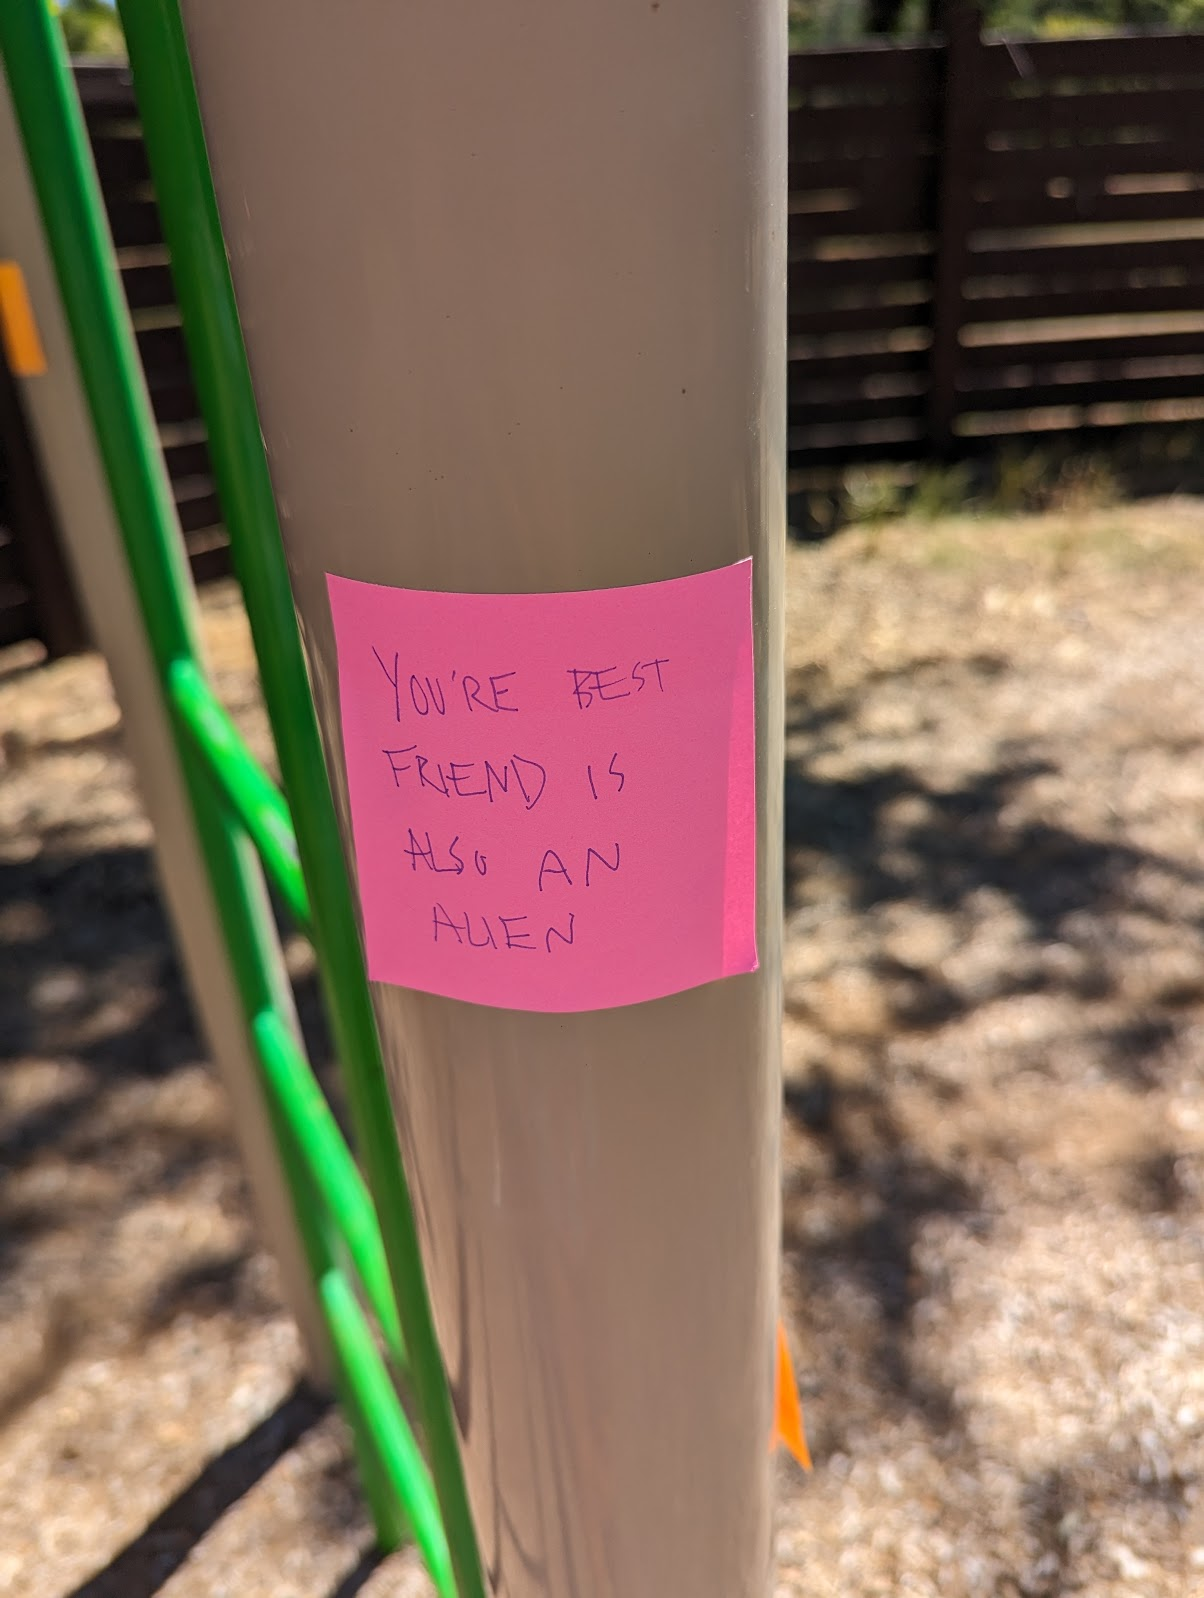 YOU'RE BEST
FRIEND IS
ALSO AN
ALIEN